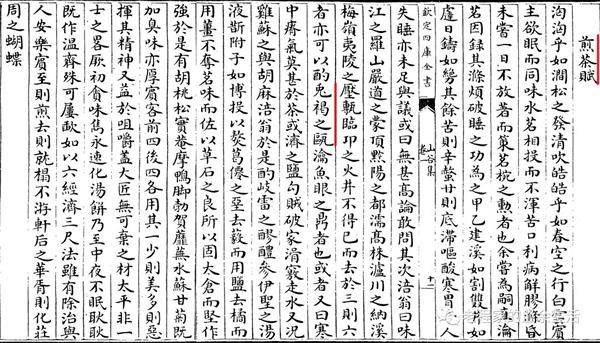 煎茶賦
洶洶乎如澗松之發清吹皓皓乎如春空之行白雲賓
主欲眠而同味水茗相投而不渾苦口利病解膠滌昏
未嘗一日不放著而策茗椀之勲者也余嘗為嗣直瀹
茗因録其滌煩破睡之功為之甲乙建溪如割雙井如
遽日鑄如勞其餘苦則辛螫甘則底滯嘔酸寒胃令人
欽定四庫全書
山谷集
十二
失睡亦未足與議或曰無甚髙論敢問其次涪翁曰味
江之羅山嚴道之蒙頂黔陽之都濡髙株瀘川之納溪
梅嶺夷陵之壓甎臨卭之火井不得已而去於三則六
者亦可以酌兔褐之甌瀹魚眼之鼎者也或者又曰寒
中瘠氣莫甚於茶或濟之鹽勾賊破家滑竅走水又况
雞蘇之與胡麻涪翁於是酌岐雷之醪醴參伊聖之湯
液斮附子如博投以熬葛僊之堊去藙而用鹽去橘而
用薑不奪茗味而佐以草石之良所以固太倉而堅作
強於是有胡桃松實菴摩鴨脚勃賀靡蕪水蘇甘菊既
加臭味亦厚賓客前四後四各用其一少則美多則惡
揮其精神又益於咀嚼蓋大匠無可棄之材太平非一
士之畧厥初貪味雋永速化湯餅乃至中夜不眠耿耿
既作温齊殊可屢歃如以六經濟三尺法雖有除治與
人安樂賓至則煎去則就榻不游軒后之華胥則化莊
周之蝴蝶